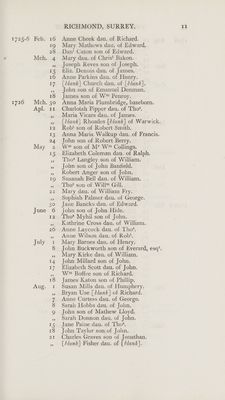 RICHMOND, SURREY. 11
1725-6 Feb. 16 Anne Cheek dau. of Richard.
19 Mary Mathews dau. of Edward.
28 Danl Caton son of Edward.
Mch. 4 Mary dau. of Chrisr Bakon.
„ Joseph Keves son of Joseph.
15 Eliz. Dennis dau. of James.
16 Anne Parkins dau. of Henry.
17 [blank] Church dau. of [blank].
„ John son of Emanuel Denman.
18 James son of Wm Penroy.
1726 Mch. 30 Anna Maria Flumbridge, baseborn.
Apl. 11 Charlotah Pipper dau. of Thos.
„ Maria Vicars dau. of James.
„ [blank] Rhoades [blank] of Warwick.
12 Robt son of Robert Smith.
13 Anna Maria Walkup dau. of Francis.
24 John son of Robert Berry.
May 2 Wm son of Mr Wm Collings.
15 Elizabeth Coleman dau. of Ralph.
„ Thos Langley son of William.
„ John son of John Banfield.
„ Robert Anger son of John.
19 Susannah Bell dau. of William.
„ Thos son of Willm Gill.
22 Mary dau. of William Fry.
„ Sophiah Palmer dau. of George.
30 Jane Bancks dau. of Edward.
June 6 John son of John Hide.
12 Thos Myhil son of John.
„ Kathrine Cross dau. of William.
26 Anne Laycock dau. of Thos.
„ Anne Wilson dau. of Robt.
July 1 Mary Barnes dau. of Henry.
8 John Buckworth son of Everard, esqr.
„ Mary Kirke dau. of William.
14 John Millard son of John.
17 Elizabeth Scott dau. of John.
„ Wm Boffee son of Richard.
18 James Katon son of Phillip.
Aug. 1 Susan Mills dau. of Humphery.
„ Bryan Use [blank] of Richard.
7 Anne Curtess dau. of George.
8 Sarah Hobbs dau. of John.
9 John son of Mathew Lloyd.
„ Sarah Donnon dau. of John.
15 Jane Paine dau. of Thos.
18 John Taylor son of John.
21 Charles Greves son of Jonathan.
„ [blank] Fisher dau. of [blank].